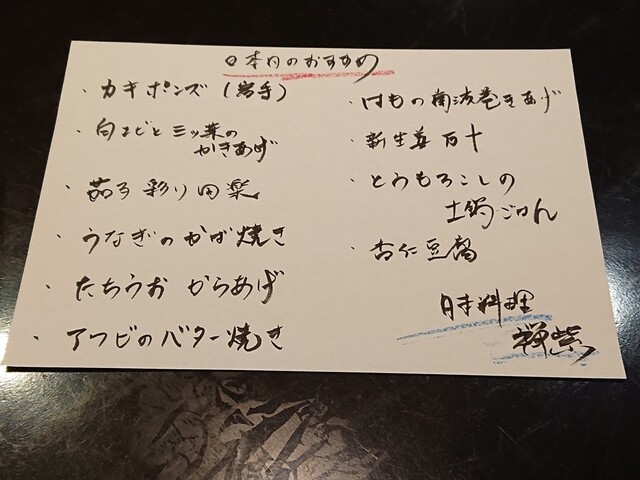 本日のおすすめ
・カキポンズ（岩手）
・白エビと三ッ葉の
かきあげ
・茄子彩り田楽
・うなぎのかば焼き
・たちうお からあげ
・アワビのバター焼き
・はもの南波巻きあげ
・新生姜
・とうもろこしの
土鍋ごはん
・杏仁豆腐
日本料理